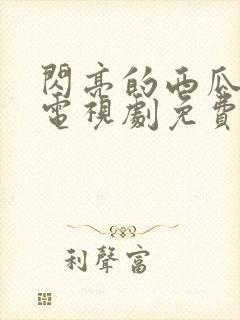 閃亮的西瓜
電視劇免費
利聲富